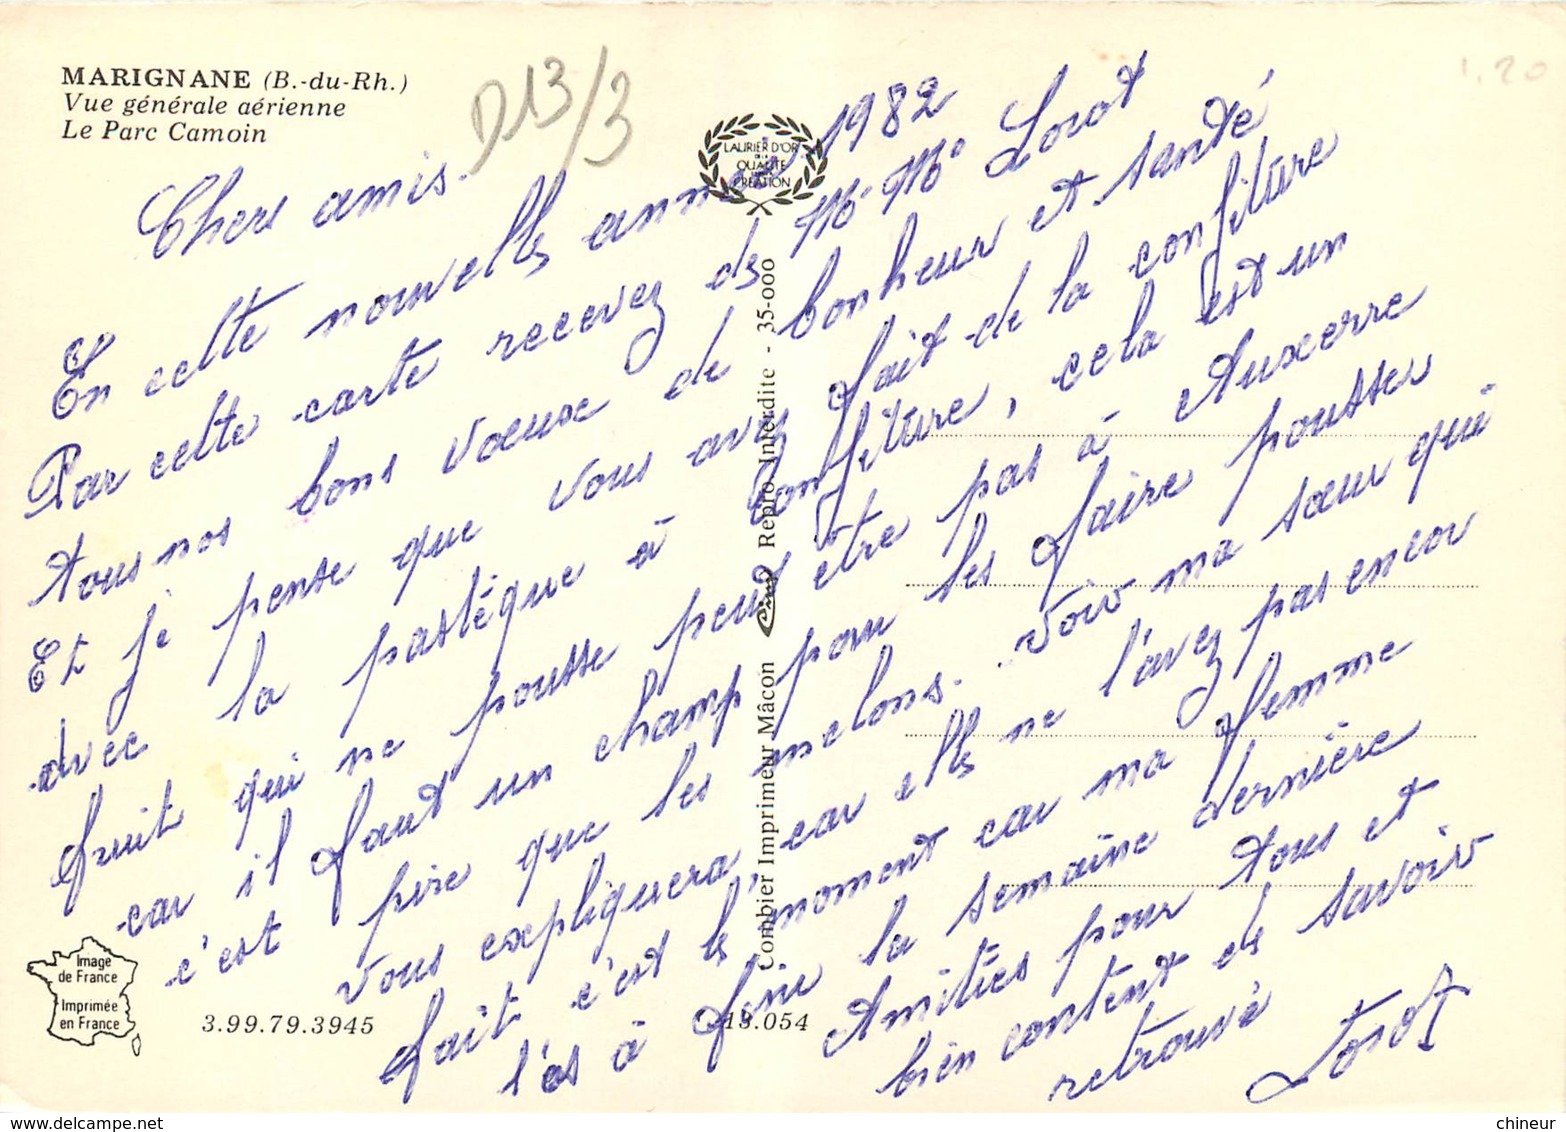 MARIGNANE (B.-du-Rh.)
Vue générale aérienne
Le Parc Camoin
D13/3
1.20
LAURIER D'OR
DE LA
QUALITÉ
CRÉATION
Chers amis.
En cette nouvelle année 1982
Par cette carte recevez de Mr Me Lorot
tous nos bons voeuxe de bonheur et santé
Et je pense que vous avez fait de la confiture
avec la pastèque à confiture, cela est un
fruit qui ne pousse peut etre pas à Auxerre
car il faut un champ pour les faire pousser
c'est pire que les melons. voir ma sœur qui
vous expliquera car elle ne l'avez pas encor
fait c'est le moment car ma femme
l'as à finie la semaine dernière
Amitiés pour tous et
bien content de savoir
retrouvé
Lorot
Combier Imprimeur Mâcon
Cim
Repro Interdite - 35-000
Image
de France
Imprimée
en France
3.99.79.3945
13.054
delcampe.net
chineur